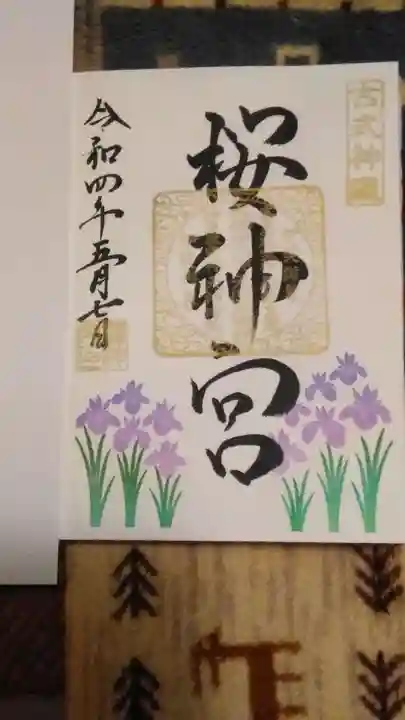 古式神道
桜神宮
令和四年五月七日